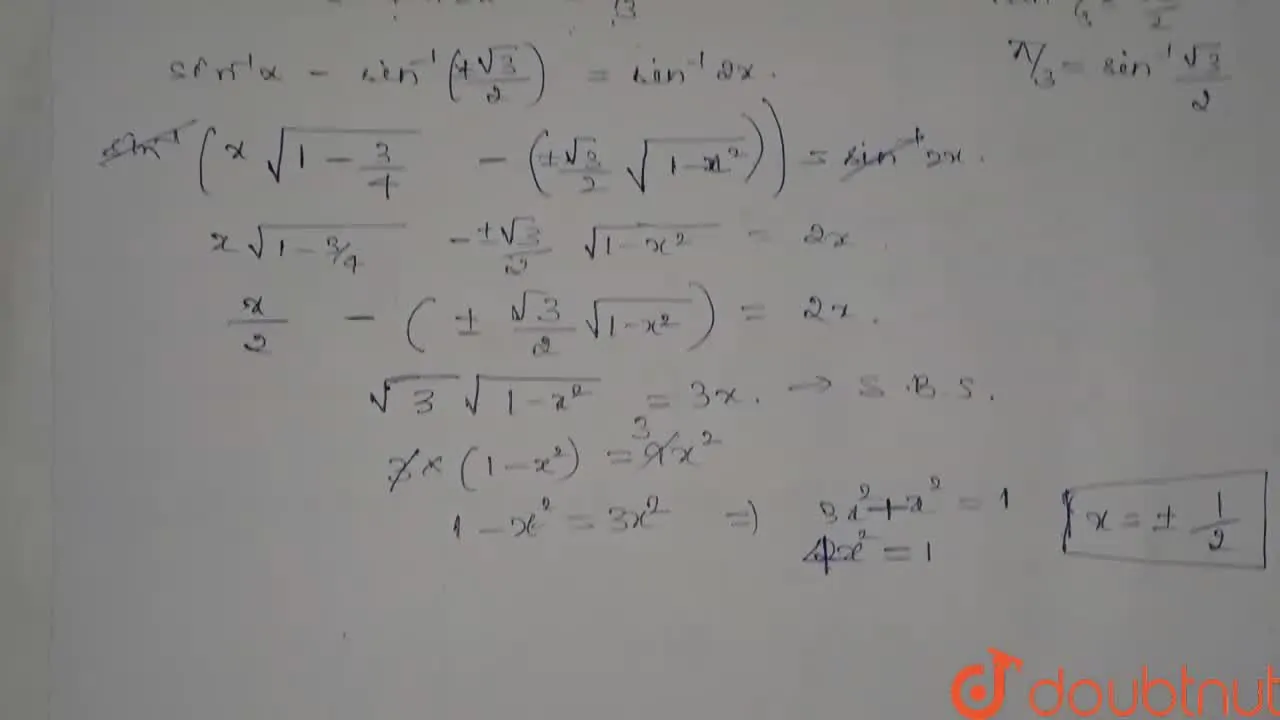 π/3 = sin⁻¹ √3/2
sin⁻¹x - sin⁻¹(±√3/2) = sin⁻¹ 2x.
sin⁻¹ (x √(1 - 3/4) - (±√3/2 √(1-x²))) = sin⁻¹ 2x.
x √(1-3/4) - ±√3/2 √(1-x²) = 2x.
x/2 - (± √3/2 √(1-x²)) = 2x.
√3 √(1-x²) = 3x. → S.B.S.
3 × (1-x²) = 9x² 3
1-x² = 3x² ⇒ 3x²+x² = 1
4x² = 1
x = ± 1/2
doubtnut